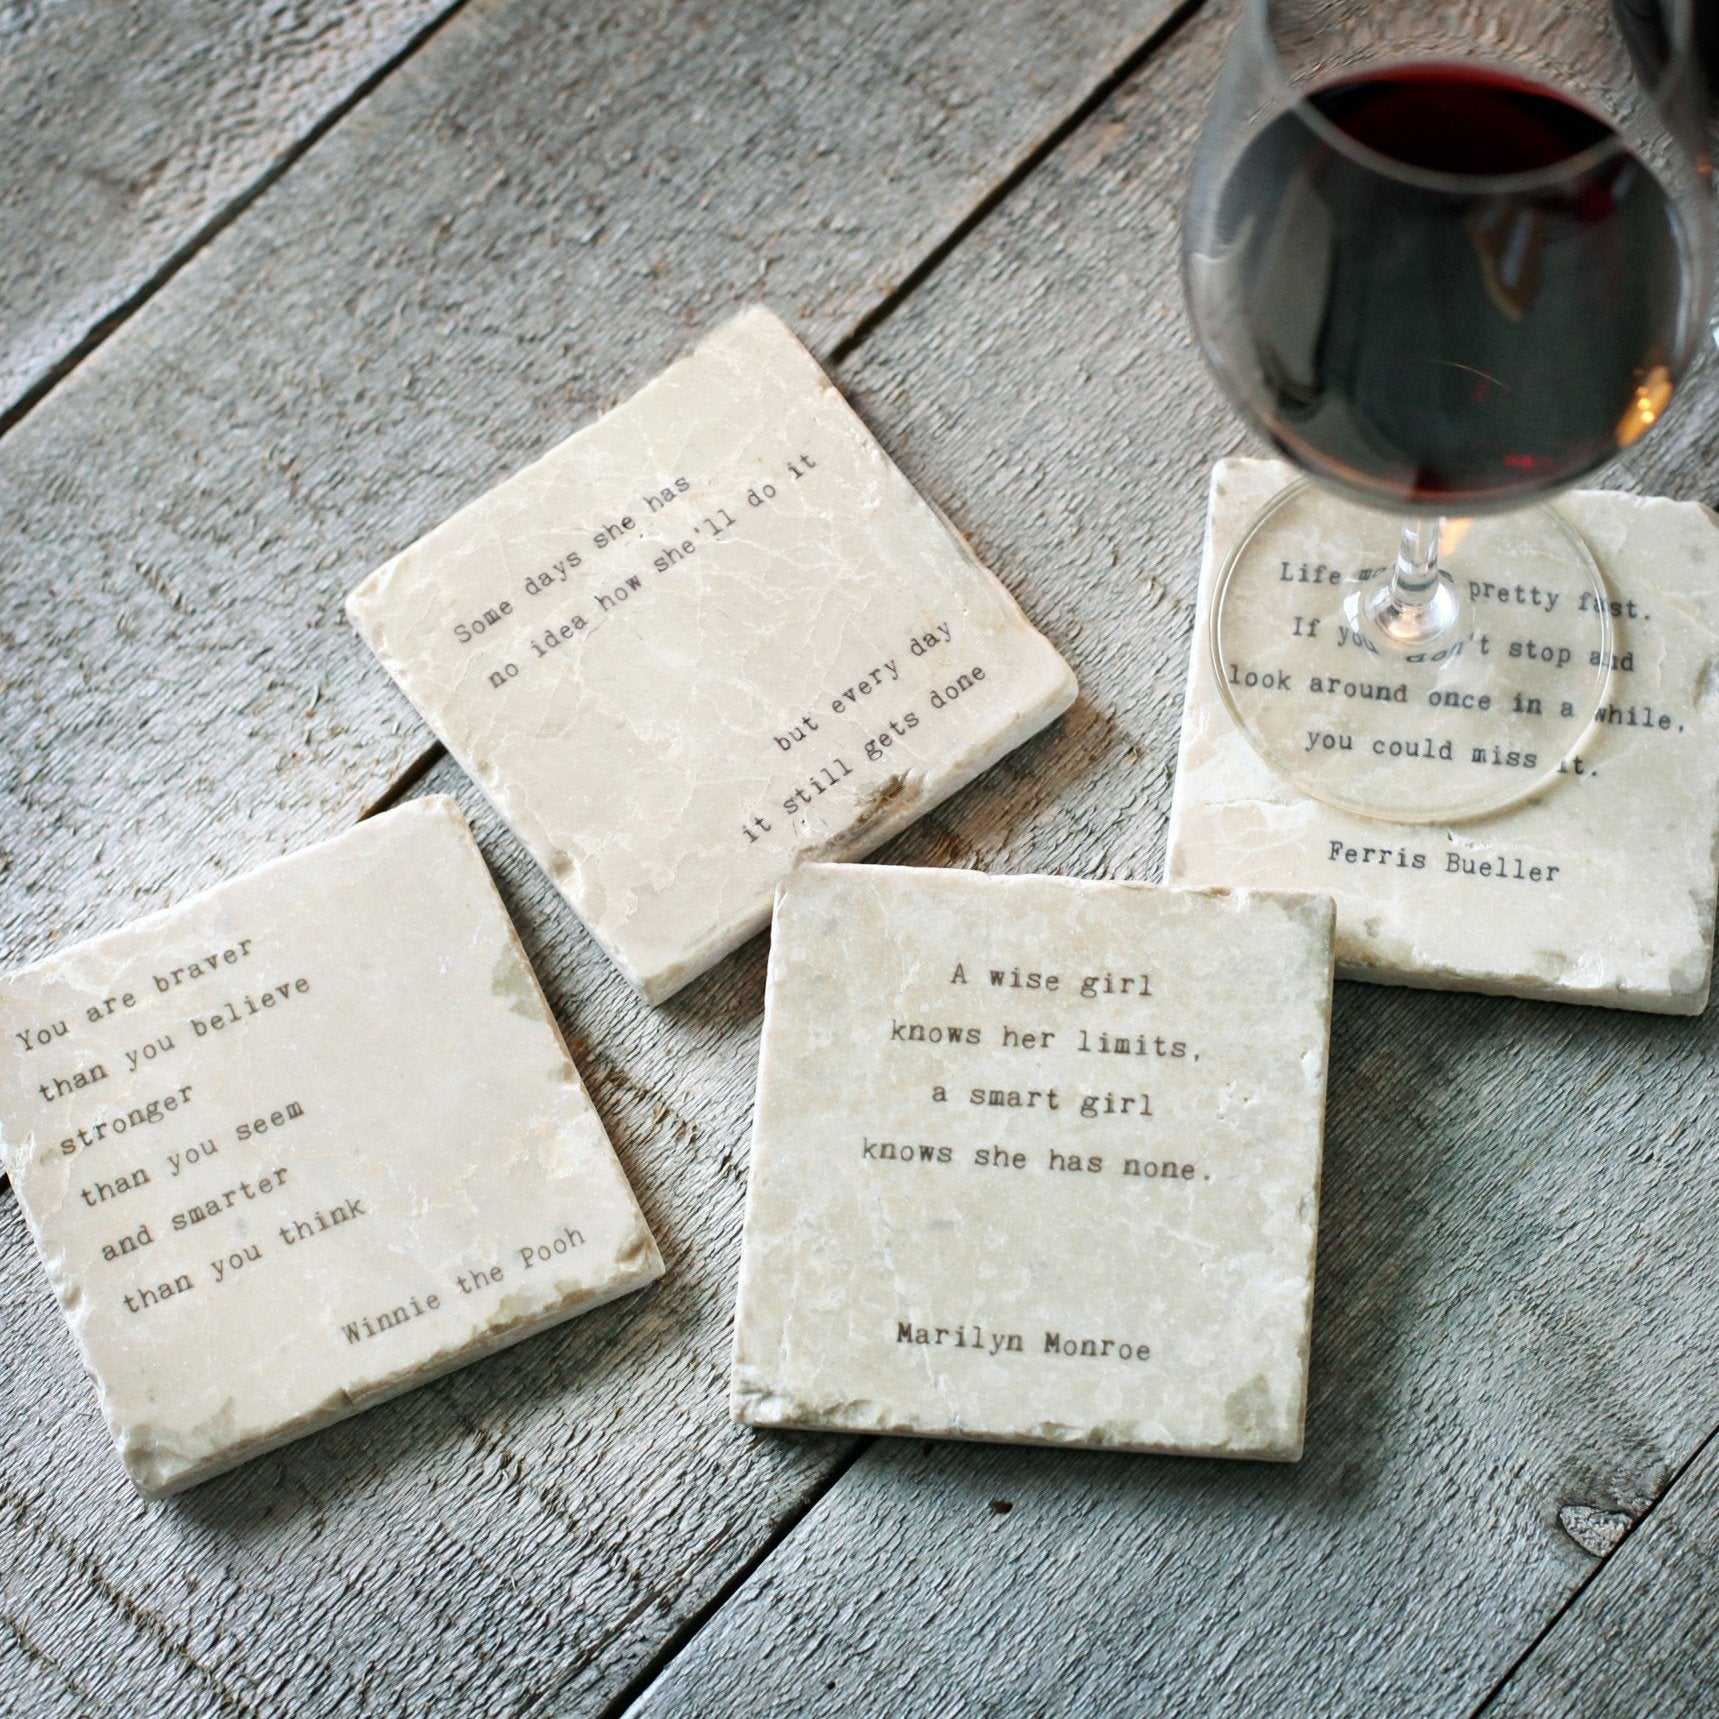 Some days she has
no idea how she'll do it
but every day
it still gets done
Life pretty fast.
If stop and
look around once in a while,
you could miss it.
Ferris Bueller
You are braver
than you believe
stronger
than you seem
and smarter
than you think
Winnie the Pooh
A wise girl
knows her limits,
a smart girl
knows she has none.
Marilyn Monroe